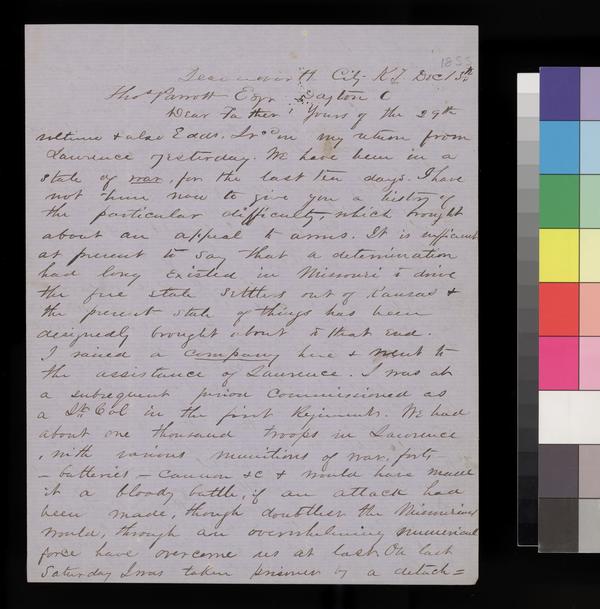 1855
Leavenworth City K.T. Dec 15th
Thos Parrott Esqr Dayton O
Dear Father; Yours of the 29th
ultimo & also Edds. I recd on my return from
Lawrence yesterday. We have been in a
state of war, for the last ten days. I have
not time now to give you a history of
the particular difficulty which brought
about an appeal to arms. It is sufficient
at present to say that a determination
had long existed in Missouri to drive
the free state settlers out of Kansas &
the present state of things has been
designedly brought about to that end.
I raised a company here & went to
the assistance of Lawrence. I was at
a subsequent period commissioned as
a Lt. Col in the first Regiment. We had
about one thousand troops in Lawrence
, with various munitions of war, forts
– batteries – cannon &c & would have made
it a bloody battle, if an attack had
been made, though doubtless the Missourians
would, through an overwhelming numerical
force have overcome us at last. On last
Saturday I was taken prisoner by a detach=